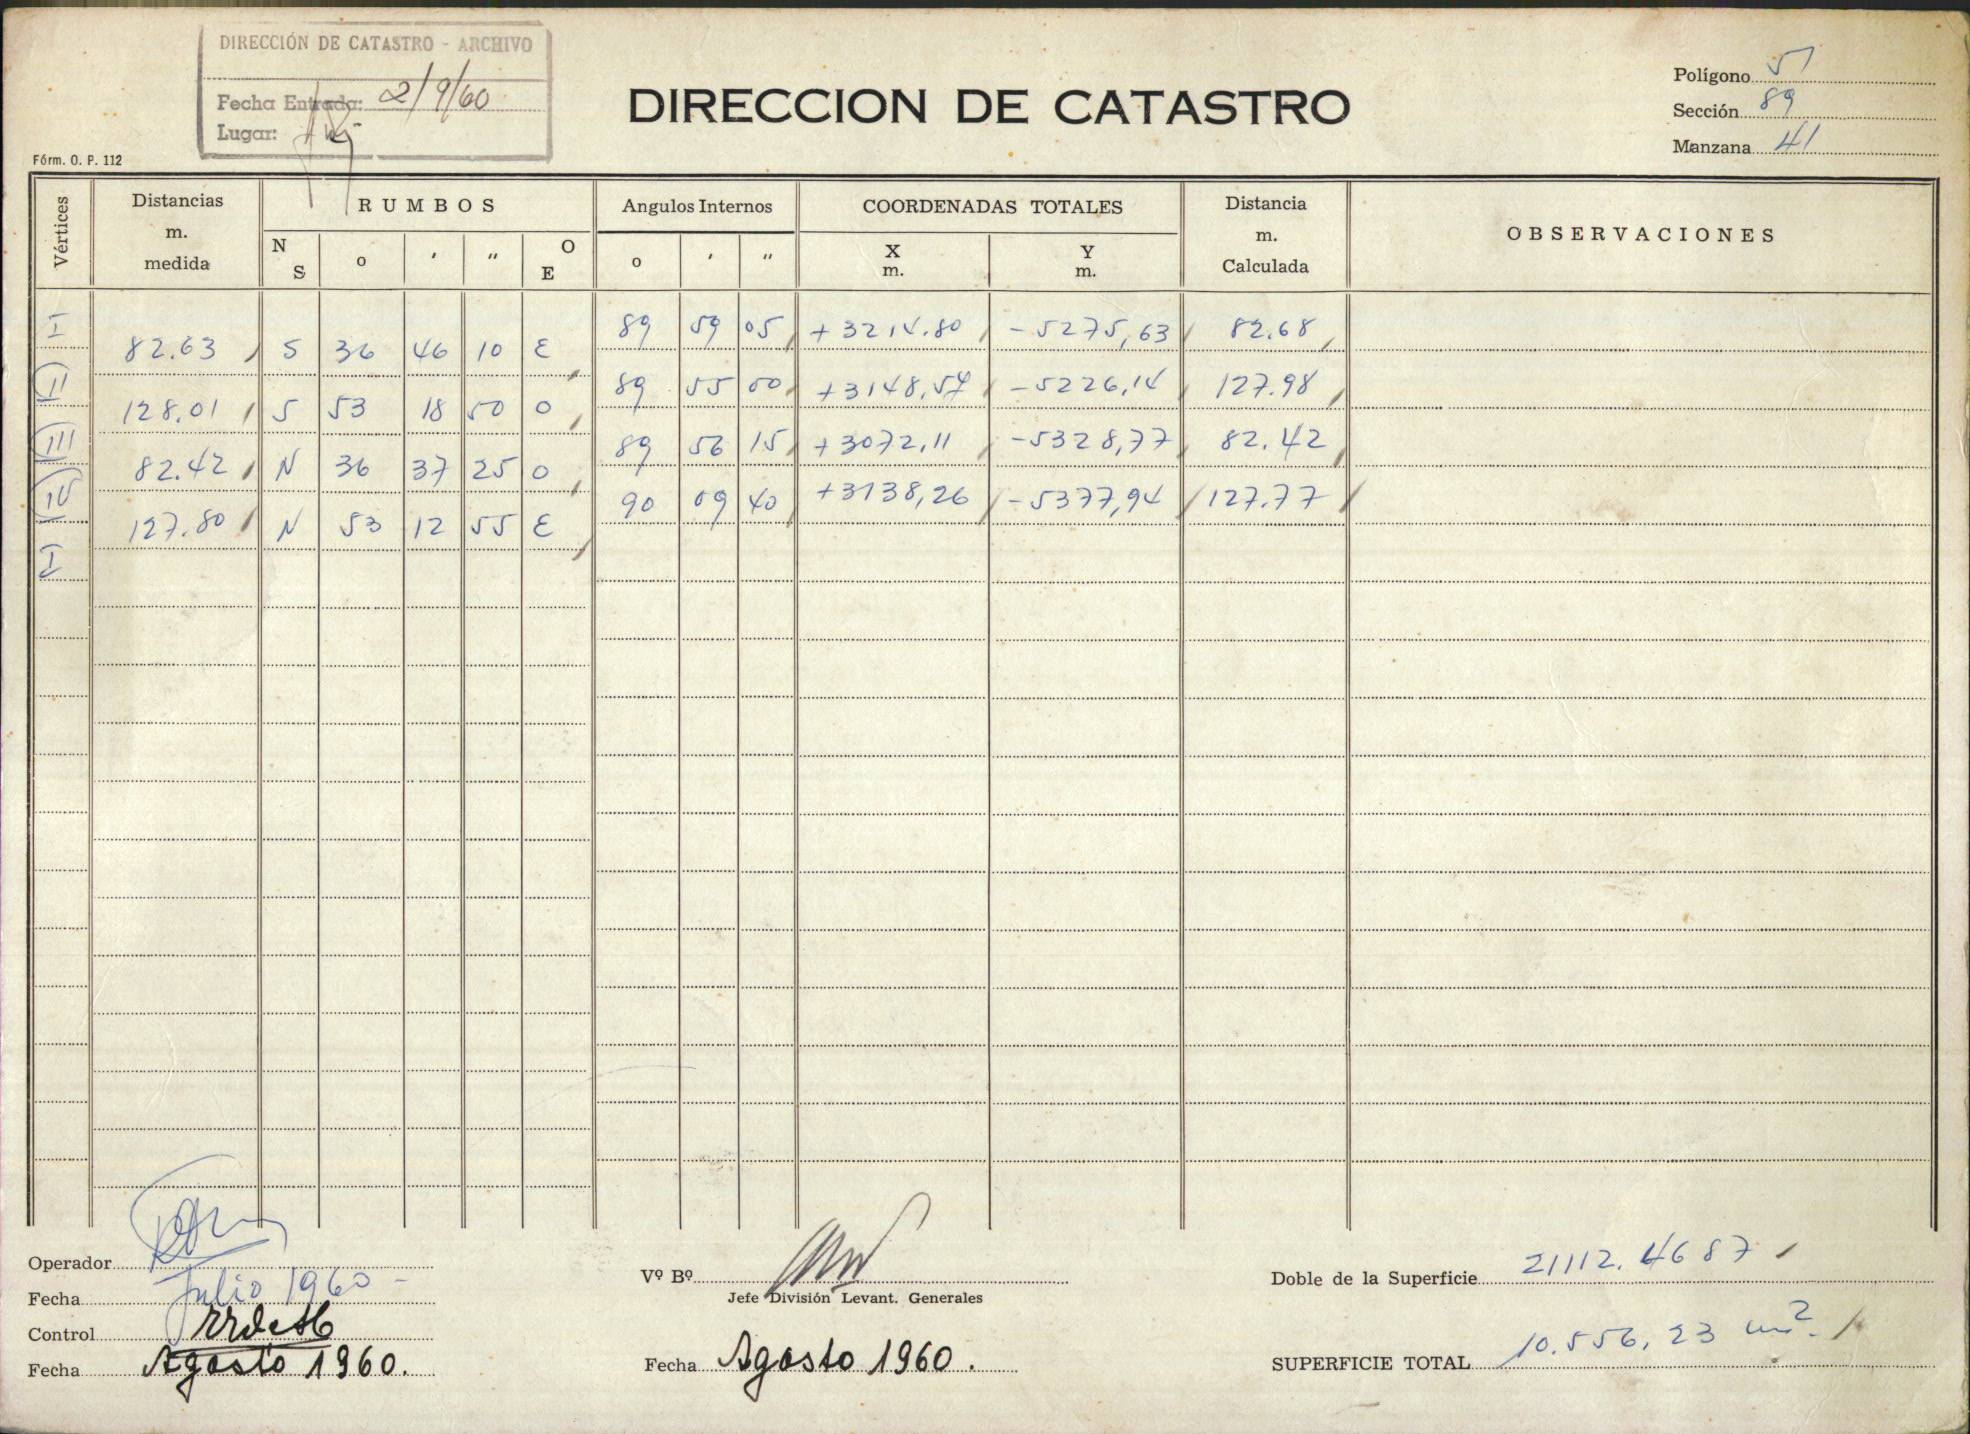 DIRECCIÓN DE CATASTRO - ARCHIVO
Fecha Entrada: 2/9/60
Lugar:
Fórm. O. P. 112
DIRECCION DE CATASTRO
Polígono 51
Sección 89
Manzana 41
Vértices
Distancias m. medida
RUMBOS
N S o ' " O E
Angulos Internos
o ' "
COORDENADAS TOTALES
X m. Y m.
Distancia m. Calculada
OBSERVACIONES
I 89 59 05 +3214.80 -5275,63 82.68
82.63 S 36 46 10 E
II 89 55 00 +3148,54 -5226,14 127.98
128.01 S 53 18 50 O
III 89 56 15 +3072,11 -5328,77 82.42
82.42 N 36 37 25 O
IV 90 09 40 +3138,26 -5377,94 127.77
127.80 N 53 12 55 E
I
Operador
Fecha Julio 1960 -
Control
Fecha Agosto 1960.
Vº Bº
Jefe División Levant. Generales
Fecha Agosto 1960.
Doble de la Superficie 21112.4687
SUPERFICIE TOTAL 10.556,23 m².